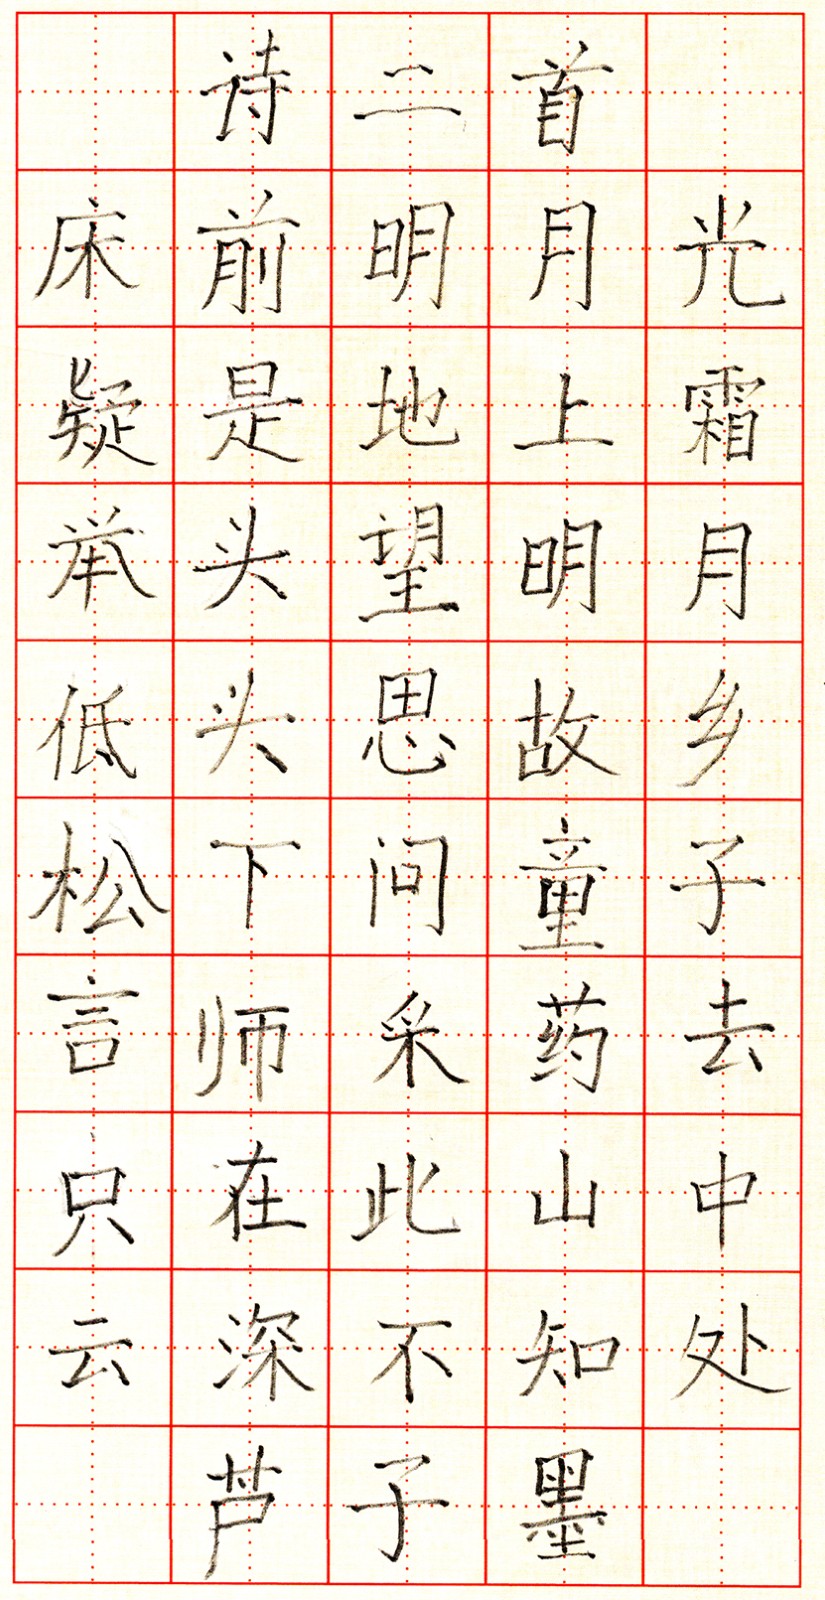 诗二首
床前明月光
疑是地上霜
举头望明月
低头思故乡
松下问童子
言师采药去
只在此山中
云深不知处
芦子墨